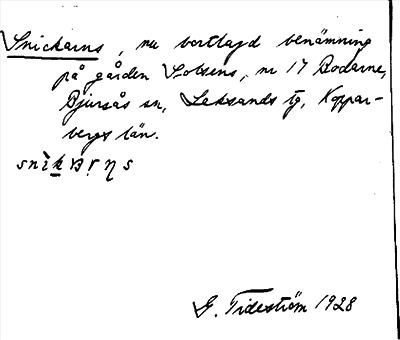 Snickarns, nu bortlagd benämning
på gården Lobsens, nr 17 Bodarne,
Bjursås sn, Leksands tg, Koppar-
bergs län.
G. Tideström 1928